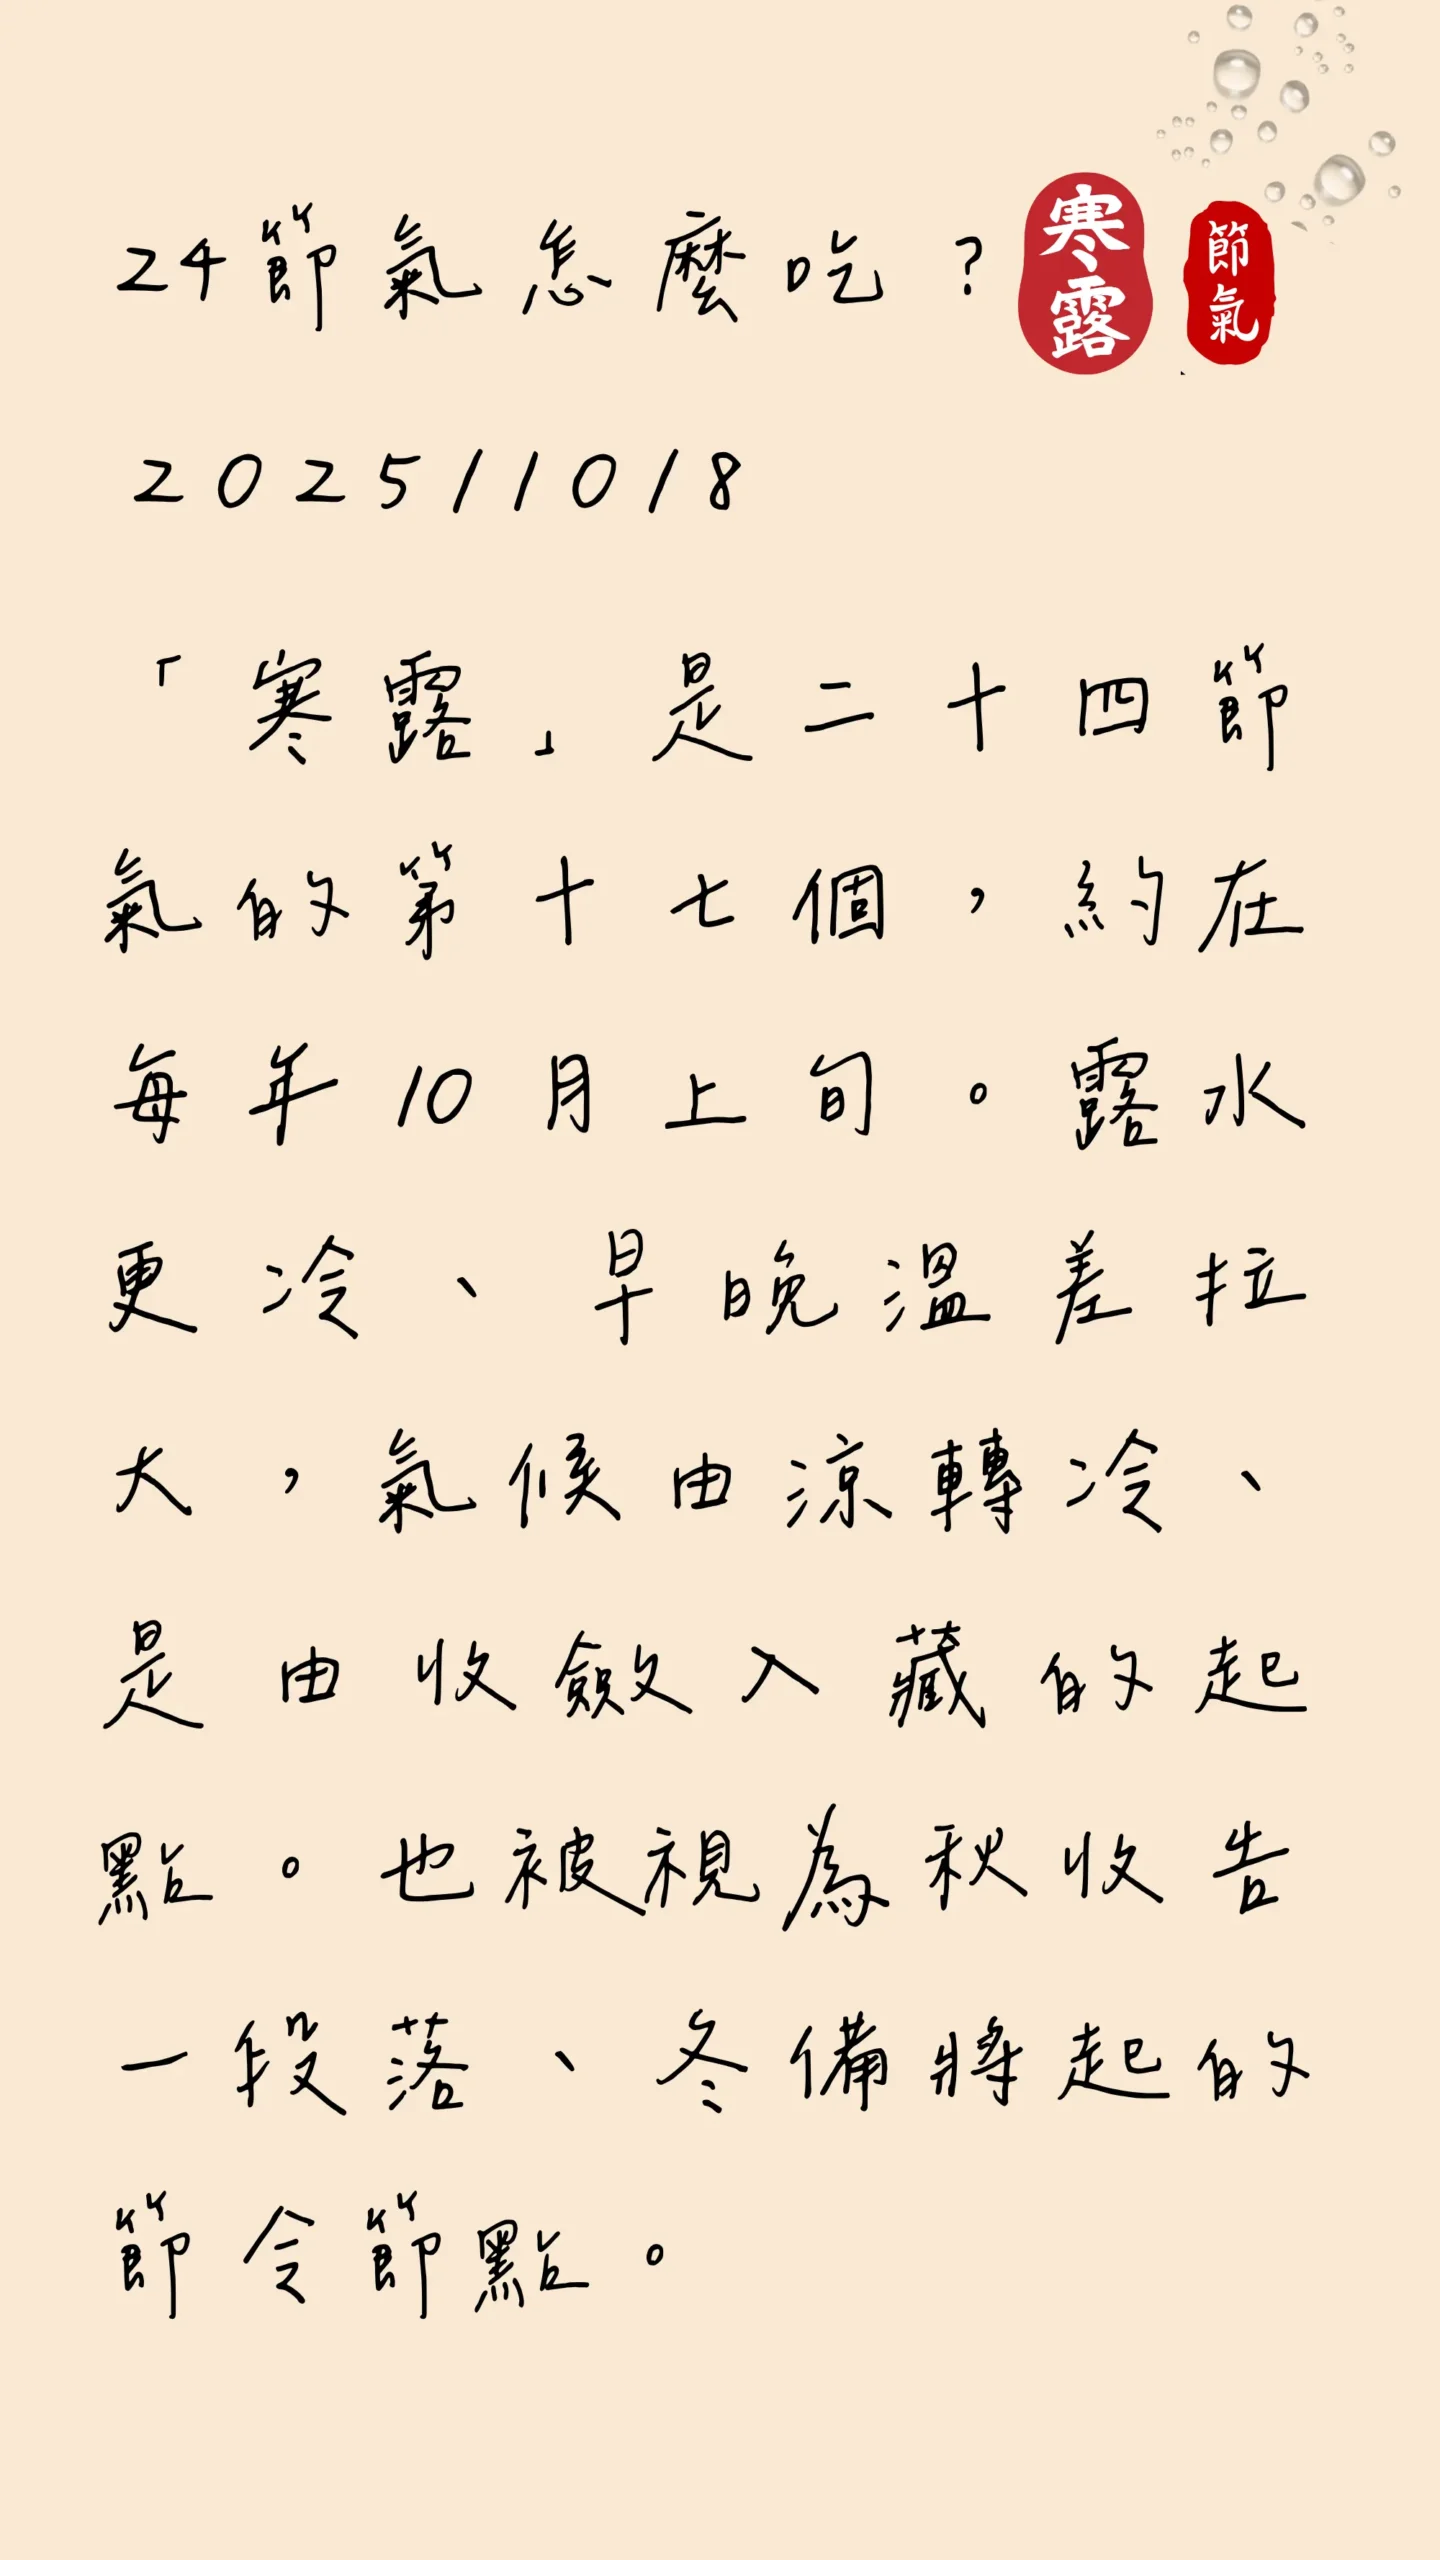 24節氣怎麼吃？ 寒露 節氣
2025/10/8
「寒露」是二十四節
氣的第十七個，約在
每年10月上旬。露水
更冷、早晚溫差拉
大，氣候由涼轉冷、
是由收斂入藏的起
點。也被視為秋收告
一段落、冬備將起的
節令節點。